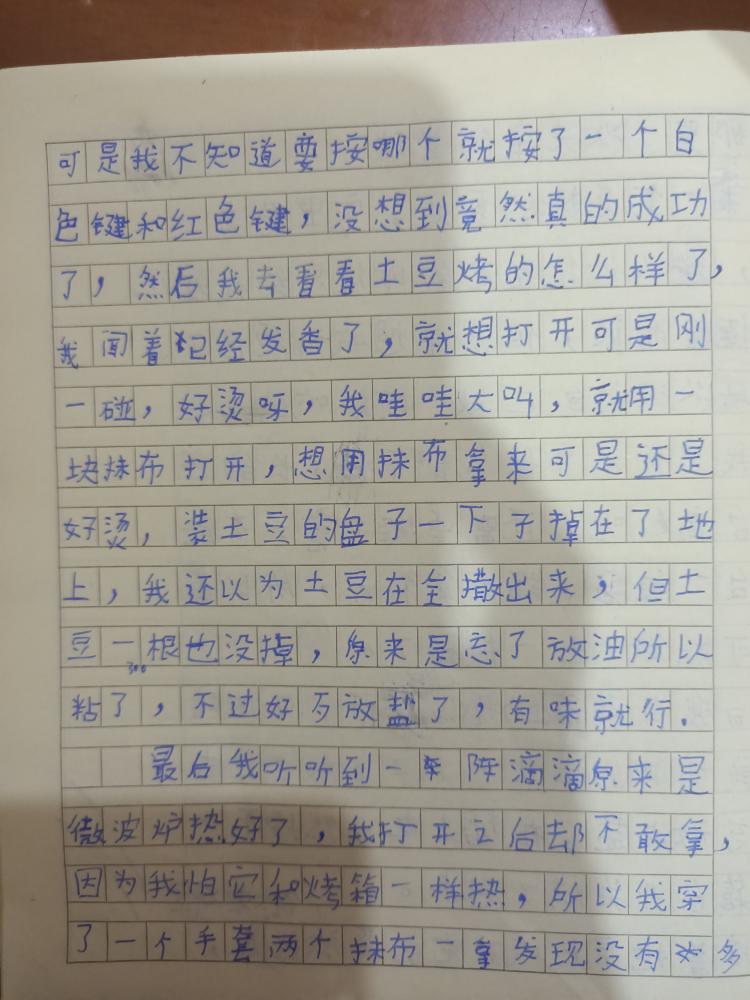 可是我不知道要按哪个就按了一个白
色键和红色键，没想到竟然真的成功
了，然后我去看看土豆烤的怎么样了，
我闻着已经发香了，就想打开可是刚
一碰，好烫呀，我哇哇大叫，就用一
块抹布打开，想用抹布拿来可是还是
好烫，装土豆的盘子一下子掉在了地
上，我还以为土豆在全撒出来，但土
豆一根也没掉，原来是忘了放油所以
300
粘了，不过好歹放盐了，有味就行.
最后我听听到一阵滴滴原来是
微波炉热好了，我打开之后却不敢拿，
因为我怕它和烤箱一样热，所以我穿
了一个手套，两个抹布一拿发现没有多